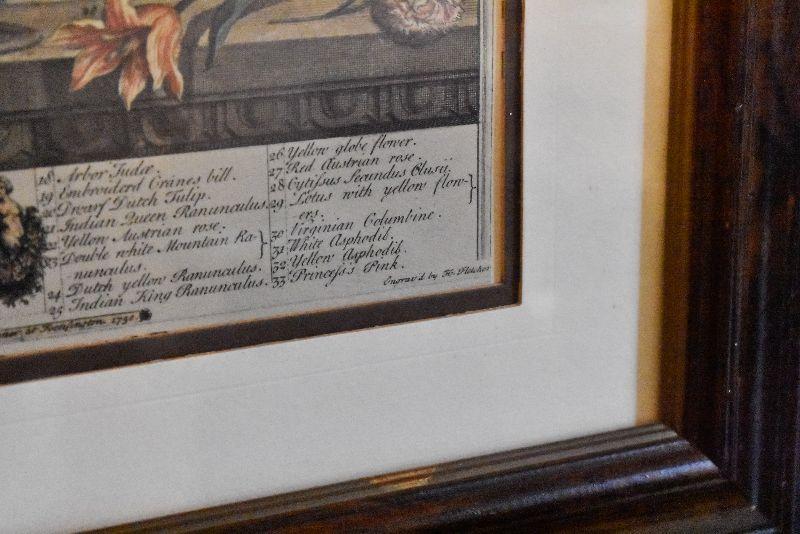 18 Arbor Judæ.
19 Embroiderd Cranes bill.
20 Dwarf Dutch Tulip.
21 Indian Queen Ranunculus.
22 Yellow Austrian rose.
23 Double white Mountain Ra-
nunculus.
24 Dutch yellow Ranunculus.
25 Indian King Ranunculus.
26 Yellow globe flower.
27 Red Austrian rose.
28 Cytissus Secundus Clusii.
29 Lotus with yellow flow-
ers.
30 Virginian Columbine.
31 White Asphodil.
32 Yellow Asphodil.
33 Princess's Pink.
Engrav'd by H. Fletcher
at Kensington 1730